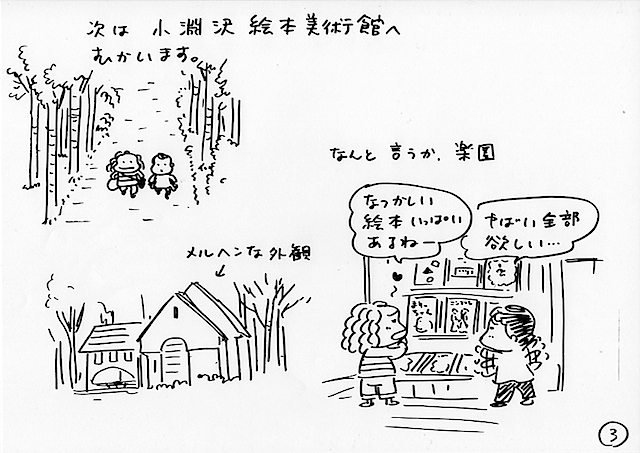 次は 小淵沢 絵本美術館へ
むかいます。
なんと言うか、楽園
なつかしい
絵本いっぱい
あるねー
やばい全部
欲しい…
メルヘンな外観
3